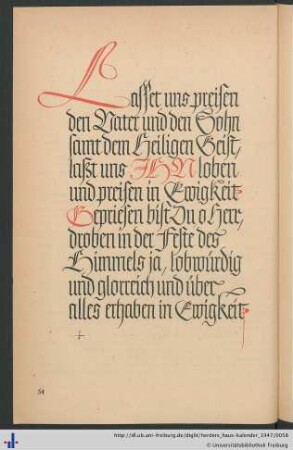 Lasset uns preisen
den Vater und den Sohn
samt dem Heiligen Geist,
laßt uns IHN loben
und preisen in Ewigkeit.
Gepriesen bist Du o Herr,
droben in der Feste des
Himmels ja, lobwürdig
und glorreich und über
alles erhaben in Ewigkeit.
54
http://dl.ub.uni-freiburg.de/diglit/herders_haus-kalender_1947/0056
© Universitätsbibliothek Freiburg